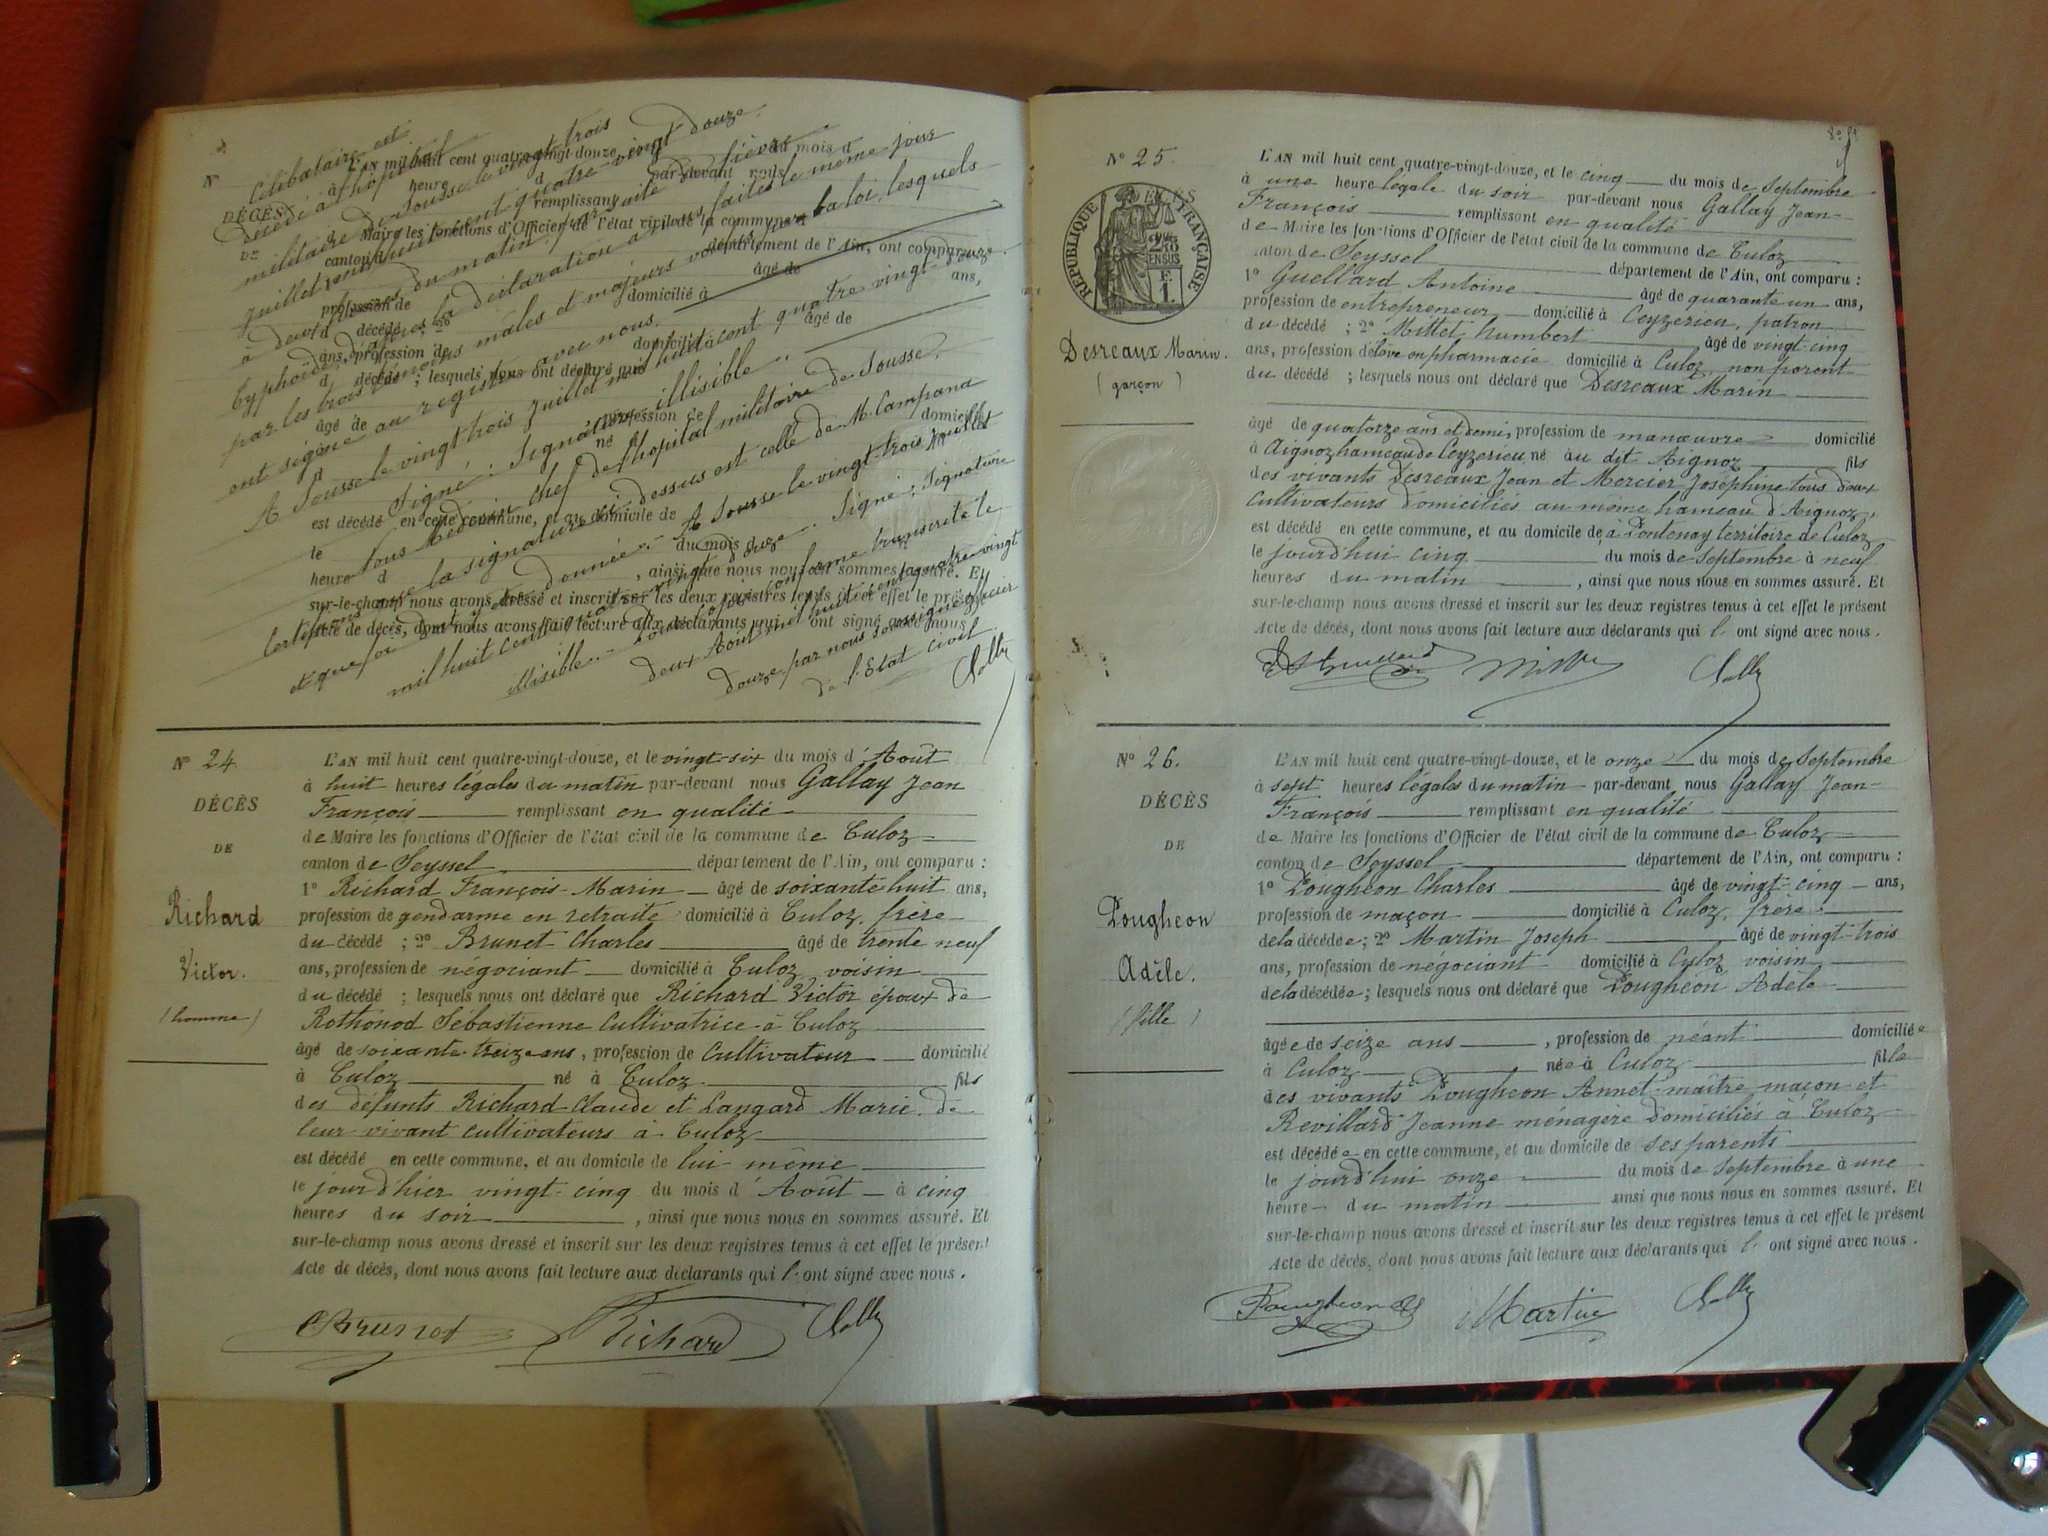 célibataire est
décédé à l'hôpital
militaire de Sousse le vingt trois
juillet mil huit cent quatre-vingt douze
à deux heures du matin par suite de fièvre
typhoïde, d'après la déclaration à nous faite le même jour
par les trois témoins mâles et majeurs voulus par la loi, lesquels
ont signé au registre avec nous.
A Sousse le vingt trois juillet mil huit cent quatre vingt douze
Signé : Signature illisible
Nous Médecin chef de l'hôpital militaire de Sousse,
Certifions que la signature ci-dessus est celle de M. Campana
et que foi doit y être donnée. A Sousse le vingt-trois juillet
mil huit cent quatre vingt douze. Signé : Signature
illisible. Pour copie conforme transcrite le
deux Août mil huit cent quatre vingt
douze par nous soussigné officier
de l'Etat civil
N° 24
DÉCÈS
DE
Richard
Victor.
(homme)
L'AN mil huit cent quatre-vingt-douze, et le vingt-six du mois d'Août
à huit heures légales du matin par-devant nous Gallay Jean
François remplissant en qualité
de Maire les fonctions d'Officier de l'état civil de la commune de Culoz
canton de Seyssel département de l'Ain, ont comparu :
1° Richard François-Marin âgé de soixante huit ans,
profession de gendarme en retraite domicilié à Culoz, frère
du décédé ; 2° Brunet Charles âgé de trente neuf
ans, profession de négociant domicilié à Culoz voisin
du décédé ; lesquels nous ont déclaré que Richard Victor époux de
Rothonod Sébastienne Cultivatrice à Culoz
âgé de soixante treize ans, profession de Cultivateur domicilié
à Culoz né à Culoz fils
des défunts Richard Claude et Langard Marie de
leur vivant cultivateurs à Culoz
est décédé en cette commune, et au domicile de lui même
le jourd'hier vingt-cinq du mois d'Août à cinq
heures du soir, ainsi que nous nous en sommes assuré. Et
sur-le-champ nous avons dressé et inscrit sur les deux registres tenus à cet effet le présent
Acte de décès, dont nous avons fait lecture aux déclarants qui l' ont signé avec nous.
CBrunet Richard
N° 25.
RÉPUBLIQUE FRANÇAISE
Desreaux Marin.
(garçon)
L'AN mil huit cent quatre-vingt-douze, et le cinq du mois de Septembre
à une heure légale du soir par-devant nous Gallay Jean-
François remplissant en qualité
de Maire les fonctions d'Officier de l'état civil de la commune de Culoz
canton de Seyssel département de l'Ain, ont comparu :
1° Guellard Antoine âgé de quarante un ans,
profession de entrepreneur domicilié à Ceyzerieu, patron
du décédé ; 2° Mittet Humbert âgé de vingt cinq
ans, profession d'élève en pharmacie domicilié à Culoz, non parent
du décédé ; lesquels nous ont déclaré que Desreaux Marin
âgé de quatorze ans et demi, profession de manœuvre domicilié
à Aignoz hameau de Ceyzerieu né au dit Aignoz fils
des vivants Desreaux Jean et Mercier Joséphine tous deux
Cultivateurs domiciliés au même hameau d'Aignoz,
est décédé en cette commune, et au domicile de à Pontenay territoire de Culoz
le jourd'hui cinq du mois de Septembre à neuf
heures du matin, ainsi que nous nous en sommes assuré. Et
sur-le-champ nous avons dressé et inscrit sur les deux registres tenus à cet effet le présent
Acte de décès, dont nous avons fait lecture aux déclarants qui l' ont signé avec nous.
N° 26.
DÉCÈS
DE
Pougheon
Adèle.
(fille)
L'AN mil huit cent quatre-vingt-douze, et le onze du mois de Septembre
à sept heures légales du matin par-devant nous Gallay Jean-
François remplissant en qualité
de Maire les fonctions d'Officier de l'état civil de la commune de Culoz
canton de Seyssel département de l'Ain, ont comparu :
1° Pougheon Charles âgé de vingt-cinq ans,
profession de maçon domicilié à Culoz, frère
de la décédée ; 2° Martin Joseph âgé de vingt-trois
ans, profession de négociant domicilié à Culoz voisin
de la décédée ; lesquels nous ont déclaré que Pougheon Adèle
âgée de seize ans, profession de néant domiciliée
à Culoz née à Culoz fille
des vivants Pougheon Annet maître maçon et
Revillard Jeanne ménagère domiciliés à Culoz
est décédée en cette commune, et au domicile de ses parents
le jourd'hui onze du mois de Septembre à une
heure du matin ainsi que nous nous en sommes assuré. Et
sur-le-champ nous avons dressé et inscrit sur les deux registres tenus à cet effet le présent
Acte de décès, dont nous avons fait lecture aux déclarants qui l' ont signé avec nous.
Pougheon Ch Martin